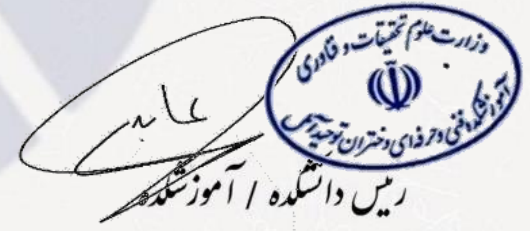 وزارت علوم تحقیقات و فناوری
آموزشکده فنی و حرفه‌ای دختران توحید آمل
عابد
رییس دانشکده / آموزشکده